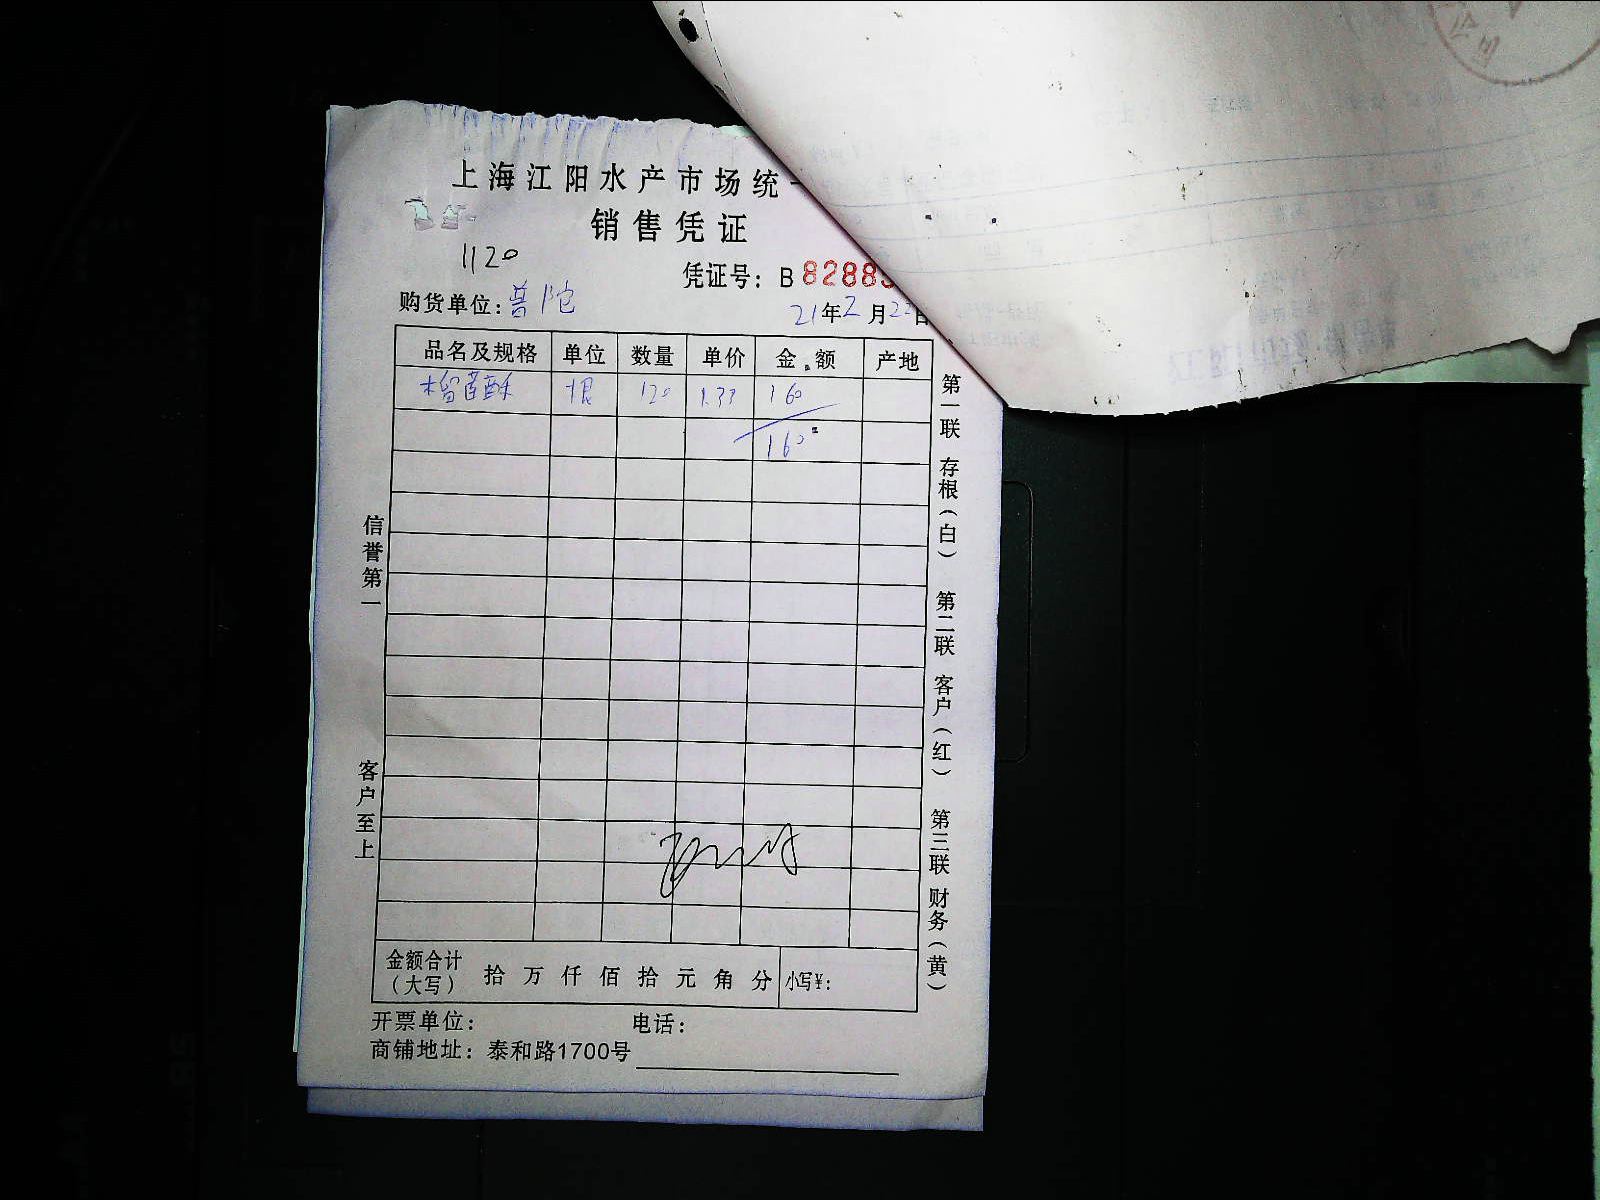 上海江阳水产市场统一
销售凭证
1120
凭证号：B 8288
购货单位：普陀
21年2月22日
品名及规格 单位 数量 单价 金额 产地
榴莲酥 根 120 1.33 160
160
信誉第一
客户至上
第一联 存根（白） 第二联 客户（红） 第三联 财务（黄）
金额合计（大写） 拾 万 仟 佰 拾 元 角 分 小写¥：
开票单位： 电话：
商铺地址：泰和路1700号